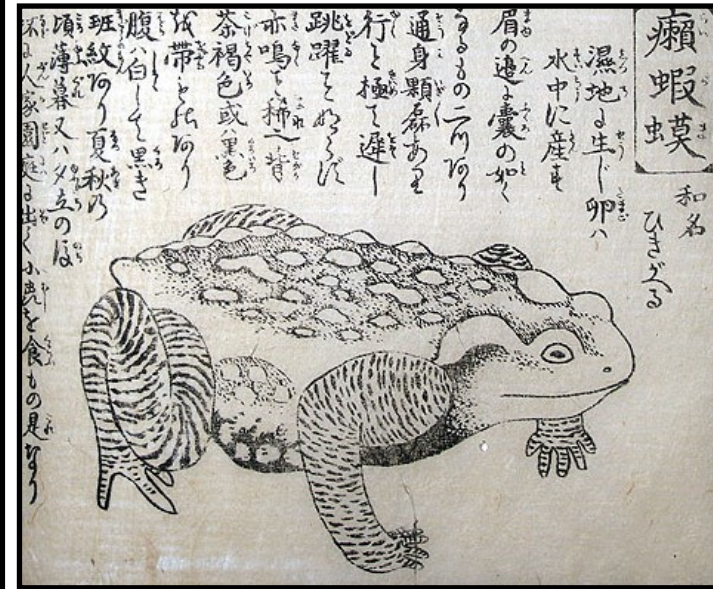 癩蝦蟆
和名
ひきがへる
濕地に生じ卵ハ
水中に産す
眉の邊に嚢の如く
なるもの二川あり
通身顆磊あり
行と極て遅し
跳躍
亦鳴と稀也背
茶褐色或ハ黒色
帯 あり
腹ハ白して黒き
斑紋あり夏秋乃
頃薄暮又ハ夕立の後
人家園庭に出て小虫を食もの是なり